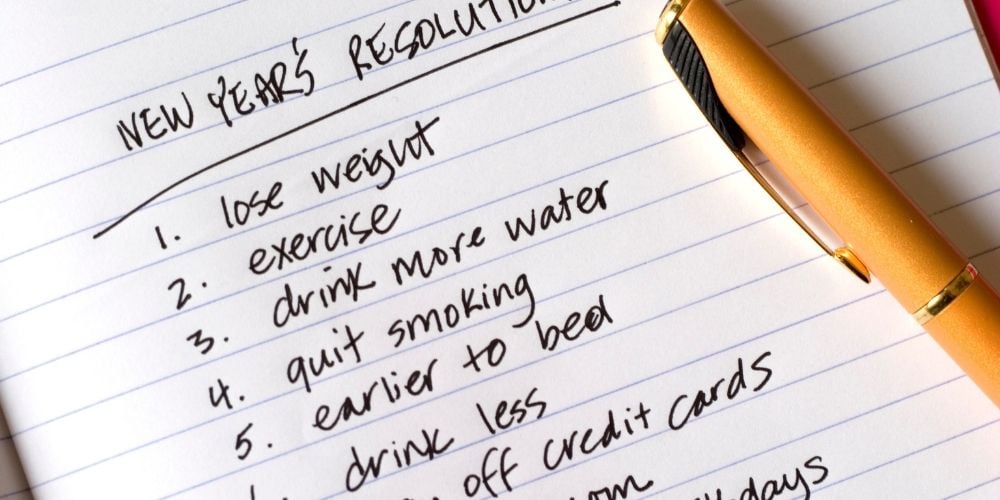 NEW YEAR'S RESOLUTION
1. lose weight
2. exercise
3. drink more water
4. quit smoking
5. earlier to bed
drink less
off credit cards